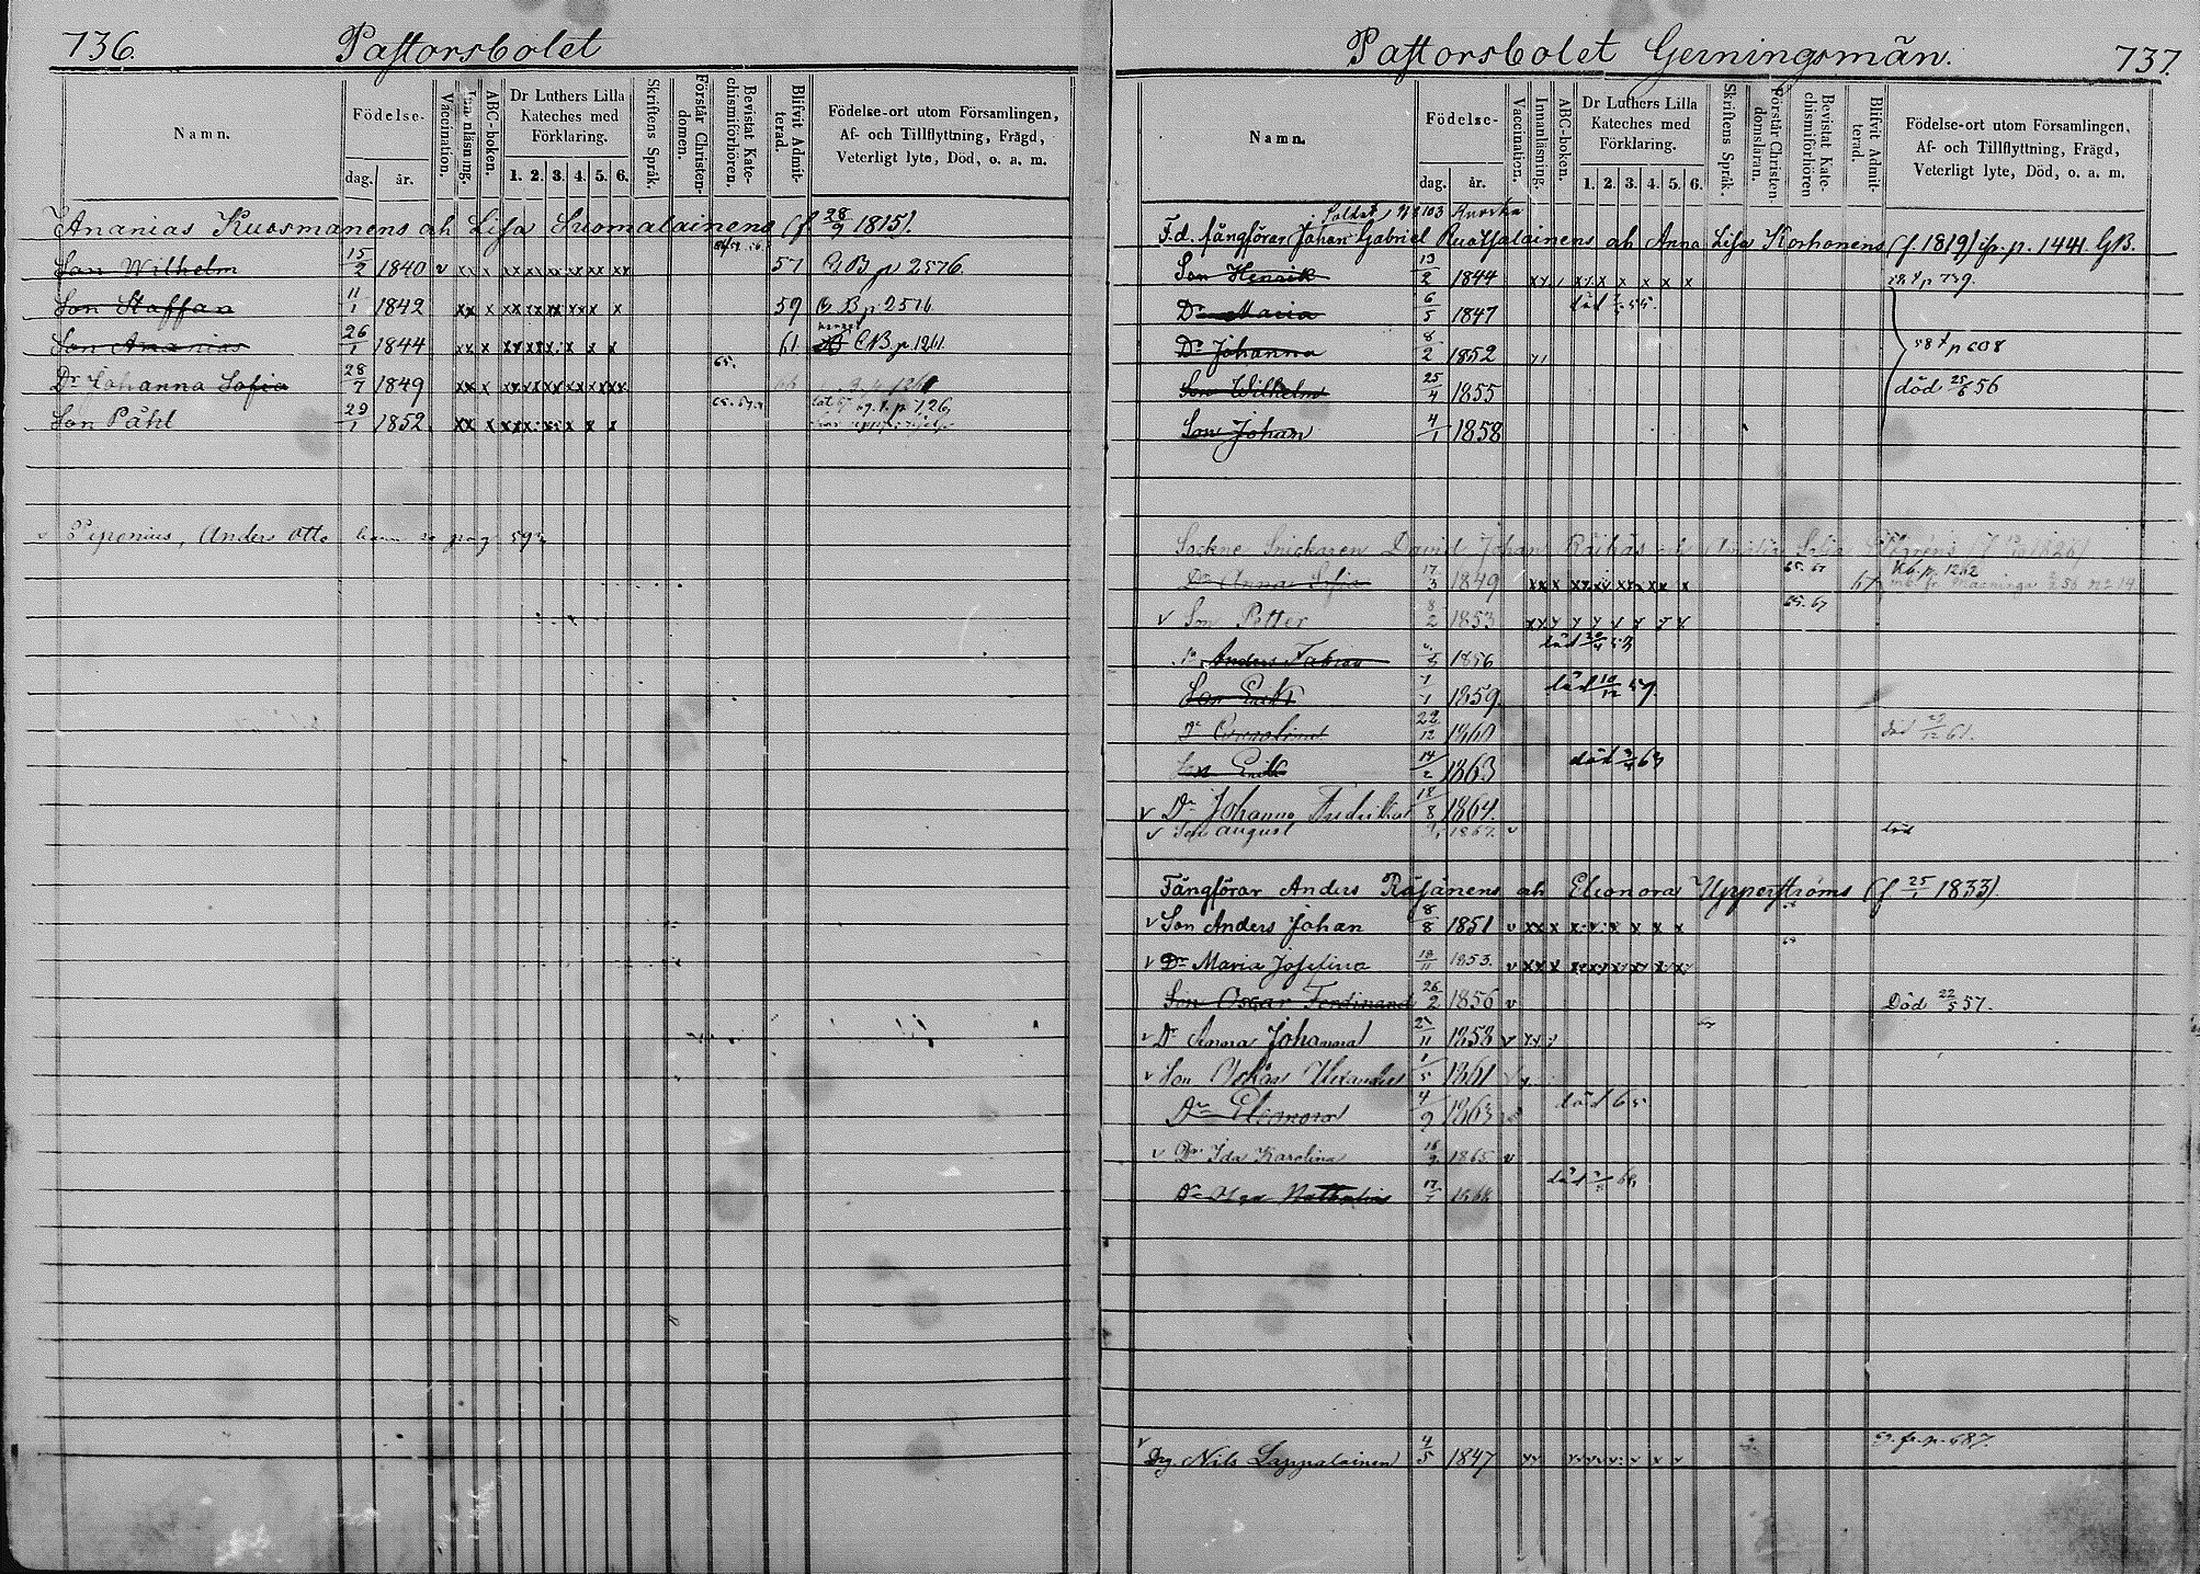 736. Pastorsbolet
Namn. Födelse- dag. år. Vaccination. Innanläsning. ABC-boken. Dr Luthers Lilla Kateches med Förklaring. 1. 2. 3. 4. 5. 6. Skriftens Språk. Förstår Christendomen. Bevistat Katechismiförhören. Blifvit Admitterad. Födelse-ort utom Församlingen, Af- och Tillflyttning, Frägd, Veterligt lyte, Död, o. a. m.
Ananias Kuosmanens och Lisa Suomalainens (f. 28/9 1815).
Son Wilhelm 15/2 1840 v xx x xx xx xx xx x xx 57 p 2576.
Son Staffan 11/1 1842 xx x xx xx xx xx x x 59 B p 2576
Son Ananias 26/1 1844 xx x xx xx x x x x 61 CB. p. 1261.
Dr Johanna Sofia 28/7 1849 xx x xx xx xx xx xx xx 65.
Son Påhl 29/1 1852 xx x xx x xx x x x p. 726
Anders Otto pag 592
Pastorsbolet Gerningsmän. 737.
Namn. Födelse- dag. år. Vaccination. Innanläsning. ABC-boken. Dr Luthers Lilla Kateches med Förklaring. 1. 2. 3. 4. 5. 6. Skriftens Språk. Förstår Christendomsläran. Bevistat Katechismiförhören Blifvit Admitterad. Födelse-ort utom Församlingen, Af- och Tillflyttning, Frägd, Veterligt lyte, Död, o. a. m.
Soldat № 103
F.d. fångförar Johan Gabriel Ruotsalainens och Anna Lisa Korhonens (f. 1819) p. 1441. GB.
Son Henrik 13/2 1844 p 739.
Dr Maria 6/5 1847 död 55.
Dr Johanna 8/2 1852 58 p 608
Son Wilhelm 25/4 1855 död 25/6 56
Son Johan 4/1 1858
Sockne Snickaren David Johan Räihäs och Sofia
Dr Anna Sofia 17/3 1849 xx x xx xx xx xx x 65. 67 67 p. 1262
v Son Petter 8/2 1853 65. 67
Anders Fabian 1856 död
Son Erik 1/1 1859 död 10/12 59.
Dr Carolina 22/12 1860 död 61.
Son Erik 14/2 1863 död 63
v Dr Johanna Fredrika 18/8 1864.
v Son August 1867. v död
Fångförar Anders Räsänens och Eleonora Upperströms (f. 25/1 1833).
v Son Anders Johan 8/8 1851 v xx x x x x x x x
v Dr Maria Josefina 18/11 1853. v xx x xx xx xx xx x x
Son Oscar Ferdinand 26/2 1856 v Död 22/5 57.
v Dr Anna Johanna 27/11 1858 v
v Son Oskar Alexander 1/5 1861
Dr Eleonora 4/9 1863 död 65
v Dr Ida Karolina 16/9 1865 v
Dr Olga Nathalia 17/ 1868 död 68
v Dg. Nils Lappalainen 4/5 1847 fr. p. 687.